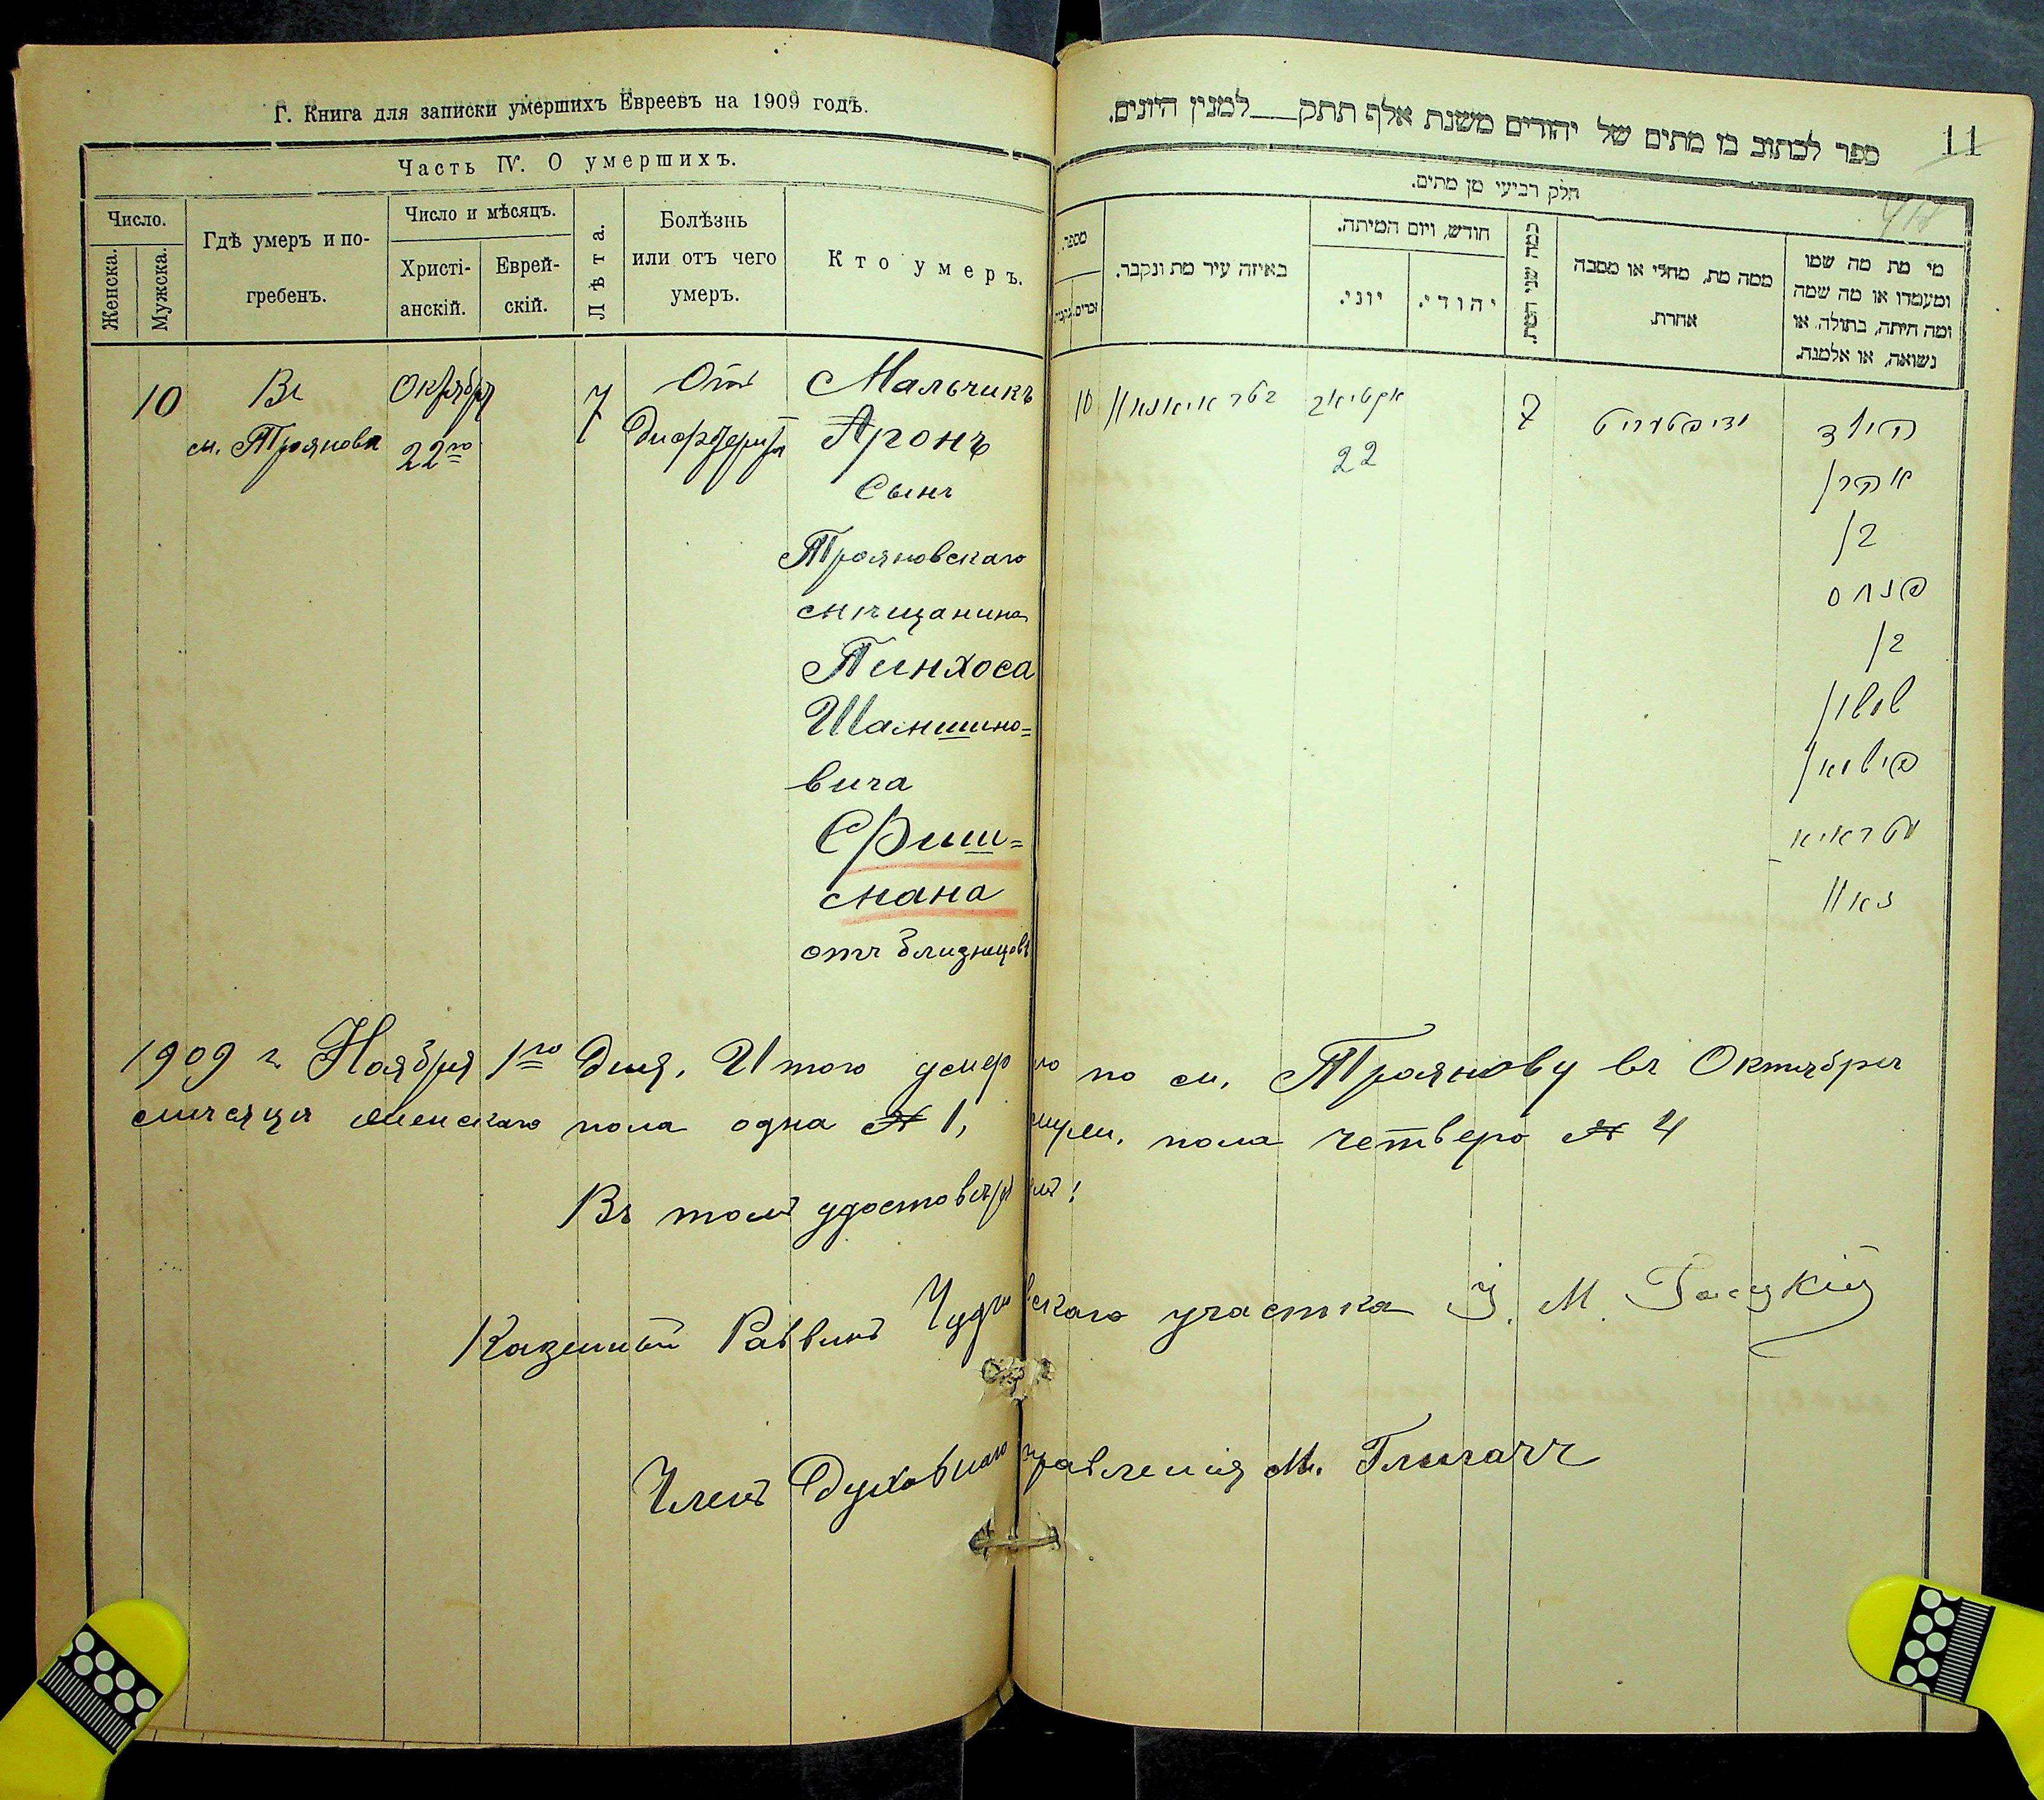 Г. Книга для записки умершихъ Евреевъ на 1909 годъ.
Часть IV. О умершихъ.
Число.
Женска.
Мужска.
Гдѣ умеръ и по-
гребенъ.
Число и мѣсяцъ.
Христі-
анскій.
Еврей-
скій.
Лѣта.
Болѣзнь
или отъ чего
умеръ.
Кто умеръ.
10
Въ
м. Трояновѣ
Октября
22го
7
Отъ
Дифтерита
Мальчикъ
Аронъ
Сынъ
Трояновскаго
мѣщанина
Пинхоса
Шамшино=
вича
Фиш=
мана
отъ близнецовъ
ספר לכתוב בו מתים של יהודים משנת אלף תתק למנין היונים.
11
חלק רביעי מן מתים.
מספר.
זכרים.
נקבות
באיזה עיר מת ונקבר.
חודש, ויום המיתה.
יוני.
יהודי.
כמה שני המת.
ממה מת, מחלי או מסבה
אחרת.
מי מת מה שמו
ומעמדו או מה שמה
ומה היתה, בתולה, או
נשואה, או אלמנה.
10
אקטיאב
22
7
הילד
אהרן
בן
פנחס
בן
שמשון
פישמאן
1909 г. Ноября 1го дня. Итого умерло по м. Троянову въ Октябрѣ
мѣсяцѣ женскаго пола одна № 1, муж. пола четверо № 4
Въ томъ удостовѣряемъ!
Казенный Раввинъ Чудновскаго участка І. М.
Членъ Духовнаго правленія М.